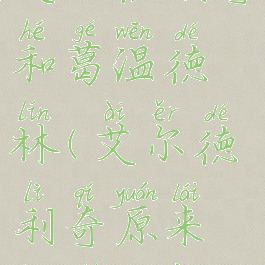 hé gé wēn dé
和葛温德
lín ài ěr dé
林(艾尔德
lì qí yuán lái
利奇原来